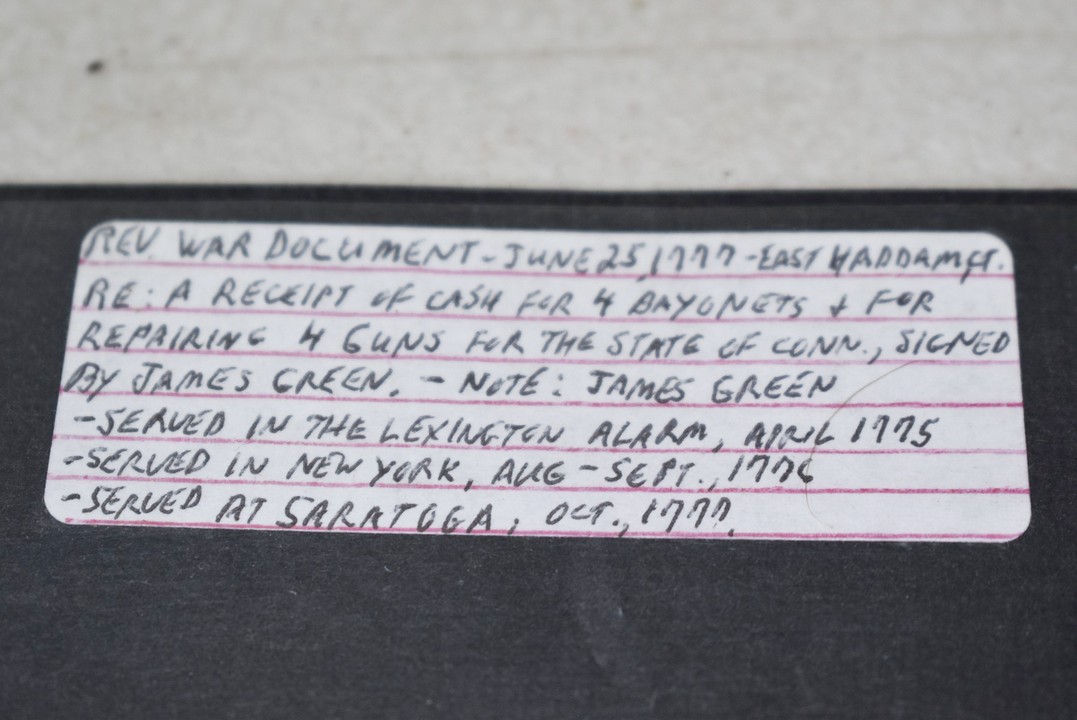 REV. WAR DOCUMENT - JUNE 25, 1777 - EAST HADDAM, CT.
RE: A RECEIPT OF CASH FOR 4 BAYONETS & FOR
REPAIRING 4 GUNS FOR THE STATE OF CONN., SIGNED
BY JAMES GREEN. - NOTE: JAMES GREEN
- SERVED IN THE LEXINGTON ALARM, APRIL 1775
- SERVED IN NEW YORK, AUG - SEPT., 1776
- SERVED AT SARATOGA, OCT., 1777.